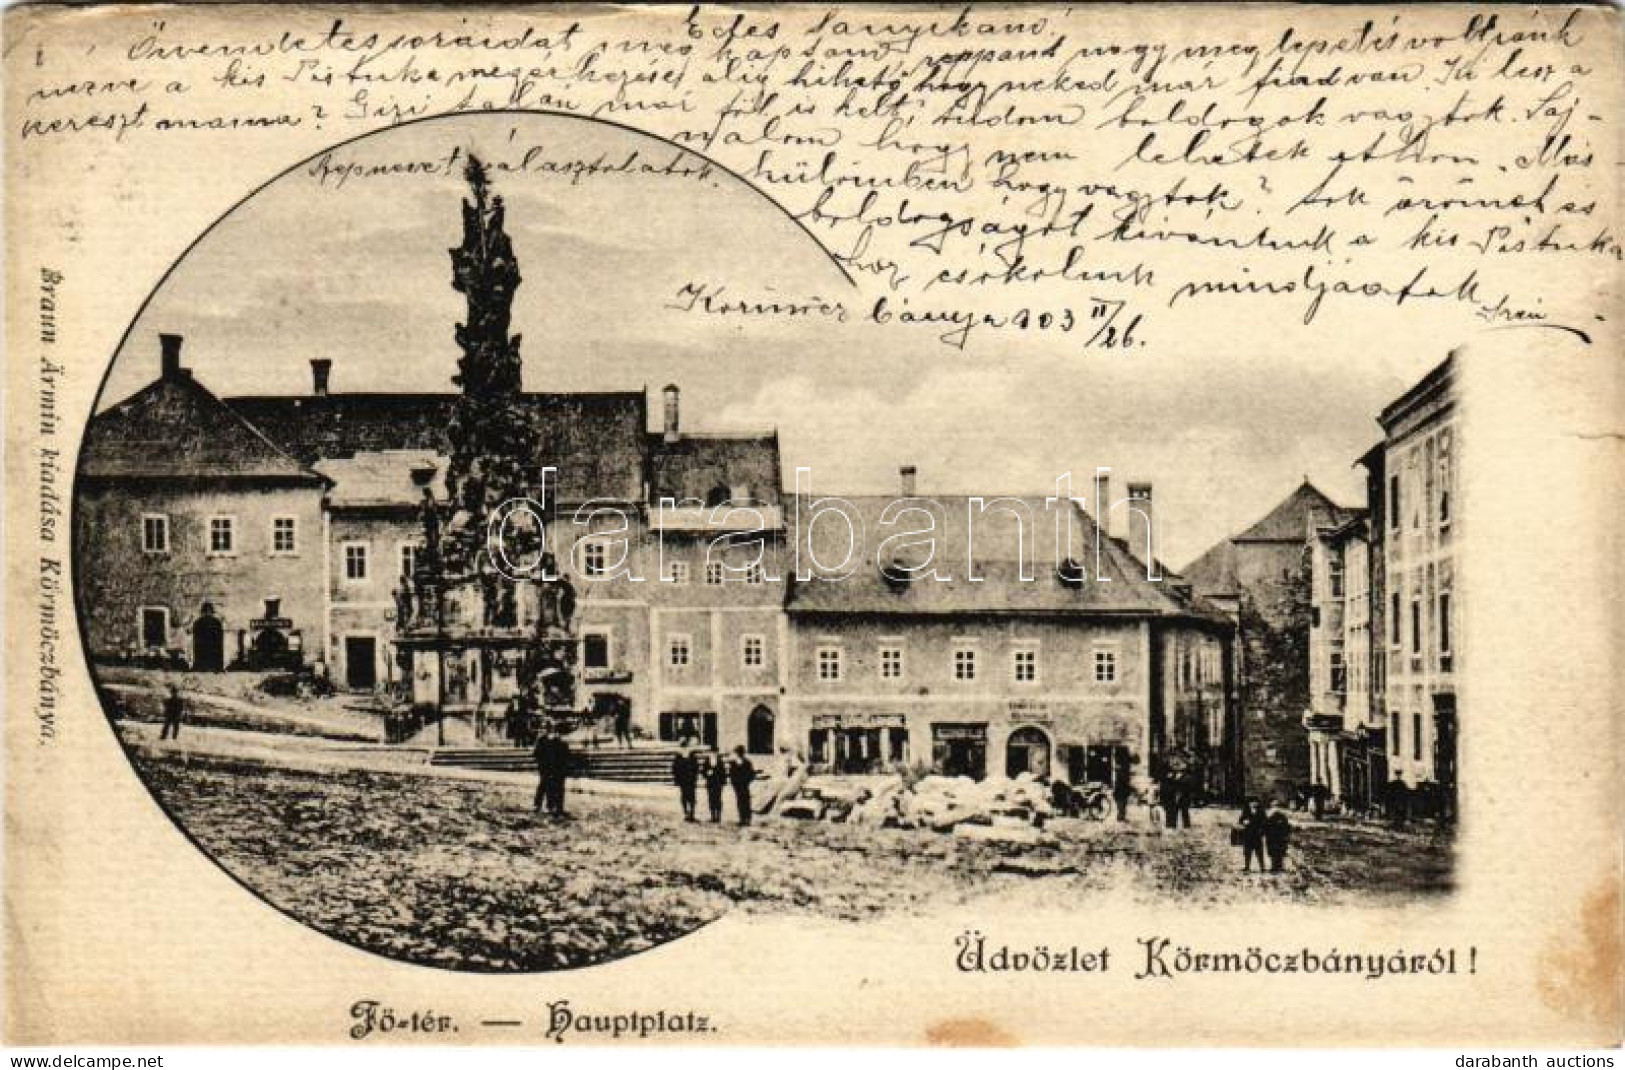 Édes Fannyikám!
Örvendetes soraidat meg kaptam, roppant nagy meglepetés volt ránk
nezve a kis Pistuka megérkezése, alig hihető hogy neked már fiad van. Ki lesz a
kereszt mama? Gizi talán már föl is kelt, tudom boldogok vagytok. Saj-
nalom hogy nem lehetek otthon. Más-
Szép nevet választottatok.
külömben hogy vagytok? sok örömet és
boldogságot kivántunk a kis Pistuka
hoz csókolunk mindjáotok
Körmöcz bánya 903 II/26. Irén
Braun Ármin kiadása Körmöczbánya.
darabanth
Üdvözlet Körmöczbányáról!
Fő-tér. — Hauptplatz.
darabanth auctions